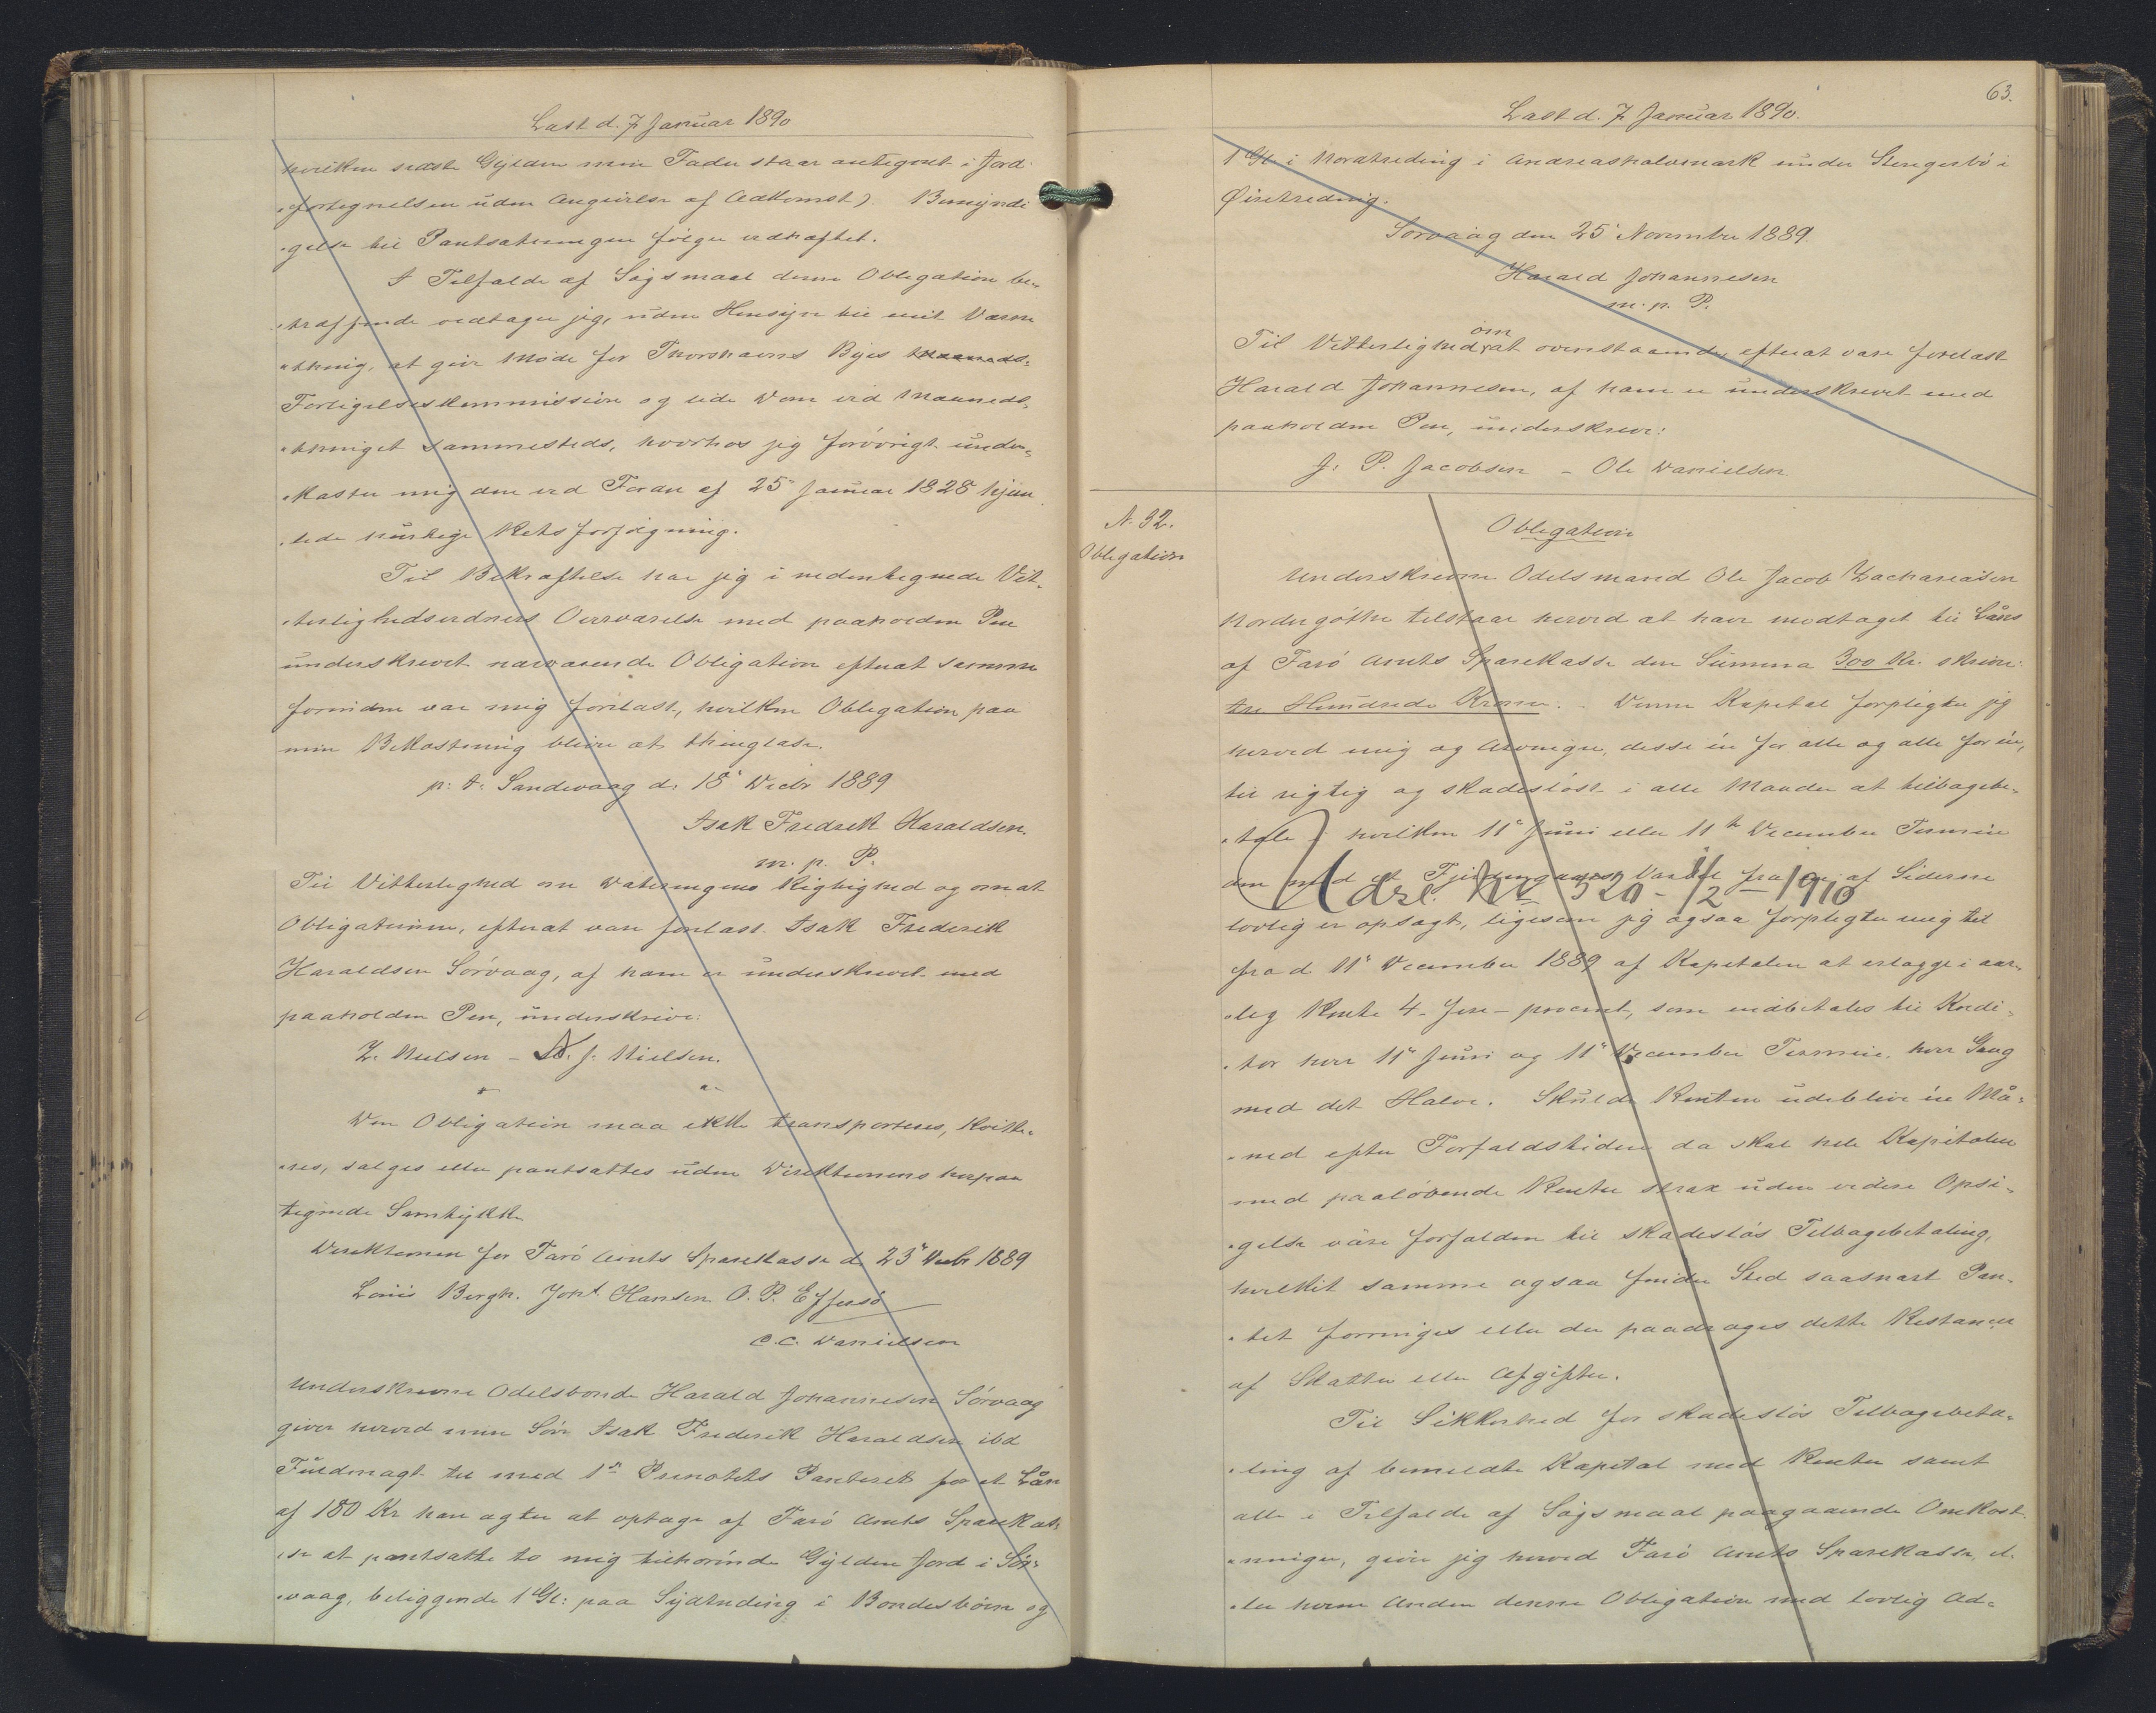 Læst d. 7 Januar 1890
hvilken sidste Gylden min Fader staar antegnet i Jord-
„fortegnelsen uden Angivelse af Adkomst). Bemyndi
„gelse til Pantsætningen følger vedhæftet.
I Tilfælde af Søgsmaal denne Obligation be„
„træffende vedtager jeg, uden Hensyn til mit Værne„
„thing, at give Møde for Thorshavns Byes
Forligelseskommission og lide Dom ved Maaneds„
„thinget sammesteds, hvorhos jeg forøvrigt under„
„kaster mig den ved Foran af 25" Januar 1828 hjem
„lede hurtige Retsforfølgning.
Til Bekræftelse har jeg i nedentegnede Vit„
„terlighedsvidners Overværelse med paaholden Pen
underskrevet nærværende Obligation efterat samme
forinden var mig forelæst, hvilken Obligation paa
min Bekostning bliver at thinglæse.
p. t. Sandevaag d. 18' Decbr 1889
Isak Fredrik Haraldsen.
m. p. P.
Til Vitterlighed om Dateringens Rigtighed og om at
Obligationen, efterat være forelæst Isak Frederik
Haraldsen Sørvaag, af ham er underskrevet med
paaholden Pen, underskrive:
Z. Nielsen – N. J. Nielsen.
Den Obligation maa ikke transporteres, kvitte„
„res, sælges eller pantsættes uden Direktionens herpaa
tegnede Samtykke
Direktionen for Færø Amts Sparekasse d. 23" Decbr 1889
Louis Bergh. Johs. Hansen O. P. Effersø
C. C. Danielsen
Underskrevne Odelsbonde Harald Johannesen Sørvaag
giver herved min Søn Isak Frederik Haraldsen ibd
Fuldmagt til med 1ste Prioritets Panteret for et Lån
af 180 Kr han agter at optage af Færø Amts Sparekas„
„se at pantsætte to mig tilhørende Gylden Jord i Sør„
„vaag, beliggende 1 Gl: paa Sydtreding i Bondesbøen og
63.
Læst d. 7 Januar 1890.
1 Gl. i Nordtreding i Andreashalvmark under Stengerbø i
Øiretreding.
Sørvaag den 25' November 1889.
Harald Johannesen
m. p. P.
Til Vitterlighed om at ovenstaaende, efterat være forelæst
Harald Johannesen, af ham er underskrevet med
paaholden Pen, underskrive:
J. P. Jacobsen – Ole Danielsen
N. 32.
Obligation
Obligation
Underskrevne Odelsmand Ole Jacob Zachariasen
Nordregøthe tilstaar herved at have modtaget til Låns
af Færø Amts Sparekasse den Summa 300 Kr. skriver
tre Hundrede Kroner. Denne Kapital forpligter jeg
herved mig og Arvinger, desse én for alle og alle for én,
til rigtig og skadesløst i alle Maader at tilbagebe„
„tale i hvilken 11" Juni eller 11te December Termin
den med et Fjerdingaars Varsel fra en af Siderne
Udsl. No 520 - 11/2 – 1910
lovlig er opsagt, ligesom jeg ogsaa forpligter mig til
fra d. 11" December 1889 af Kapitalen at erlægge i aar„
„lig Rente 4 – fire – procent, som indbetales til Kredi„
„tor hver 11" Juni og 11" December Termin. hver Gang
med det Halve. Skulde Renten udeblive én Må„
„ned efter Forfaldstiden da skal hele Kapitalen
med paaløbende Renter strax uden videre Opsi„
„gelse være forfalden til skadesløs Tilbagebetaling,
hvilket samme ogsaa finder Sted saasnart Pan„
„tet forringes eller der paadrages dette Restancer
af Skatter eller Afgifter.
Til Sikkerhed for skadesløs Tilbagebeta„
„ling af bemeldte Kapital med Renter samt
alle i Tilfælde af Søgsmaal paagaaende Omkost„
„ninger, giver jeg herved Færø Amts Sparekasse, el„
„ler hvem Anden denne Obligation med lovlig Ad„